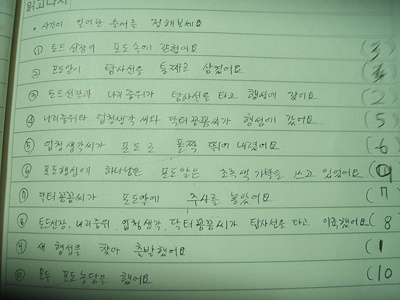 읽고나서
• 사건이 일어난 순서를 정해보세요
① 토드 선장이 포도 속에 갇혔어요 (3)
② 포도알이 탐사선을 통째로 삼켰어요
③ 토드선장과 나리중위가 탐사선을 타고 행성에 갔어요 (2)
④ 나리중위와 엄청생각 씨와 닥터꼼꼼씨가 행성에 갔어요 (5)
⑤ 엄청생각씨가 포도로 폴짝 뛰어 내렸어요 (6)
⑥ 포도행성에 하나남은 포도알은 초록색 가발을 쓰고 있었어요 (9)
⑦ 닥터꼼꼼씨가 포도알에 주사를 놓았어요 (7)
⑧ 토드선장, 나리중위 엄청생각, 닥터꼼꼼씨가 탐사선을 타고 이륙했어요 (8)
⑨ 새 행성을 찾아 출발했어요 (1)
⑩ 모두 포도농담을 했어요 (10)